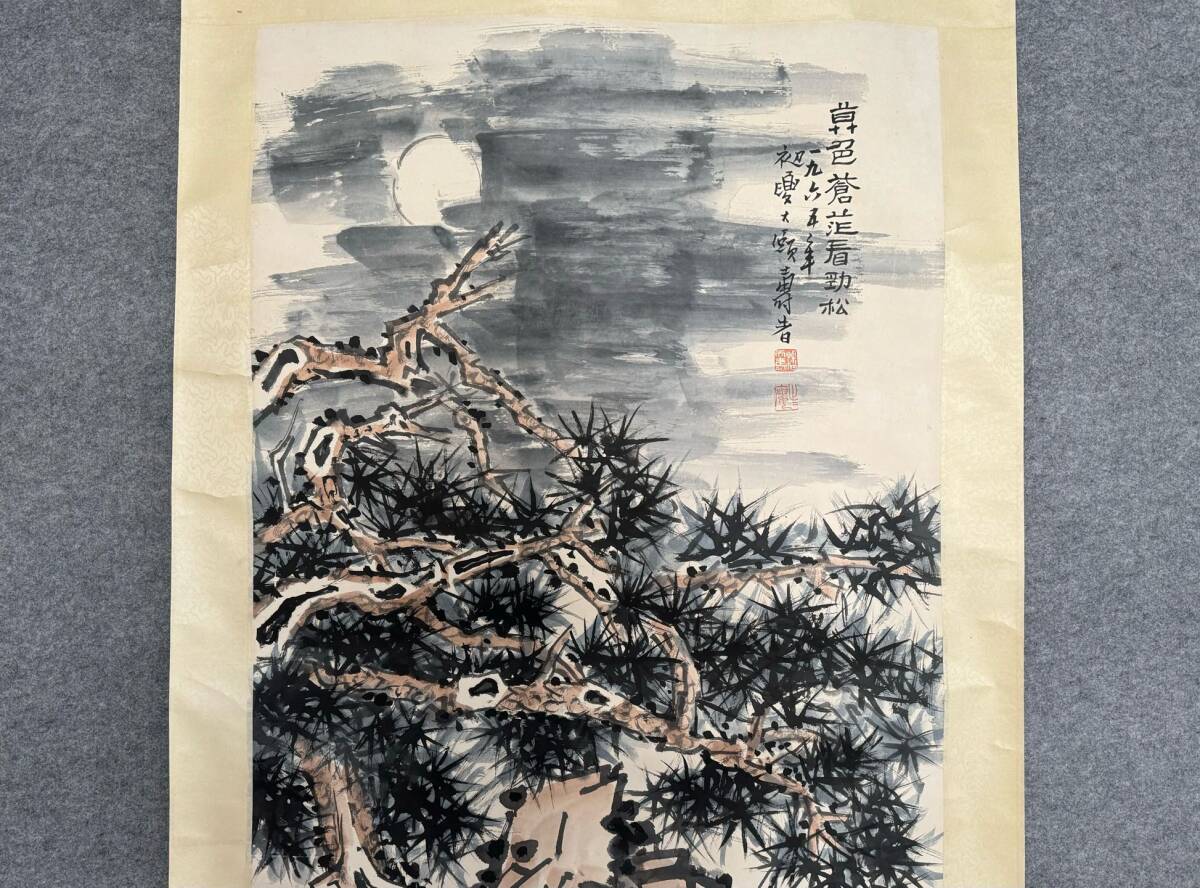 莫色蒼茫看勁松
一九六五年
初夏大頤壽者